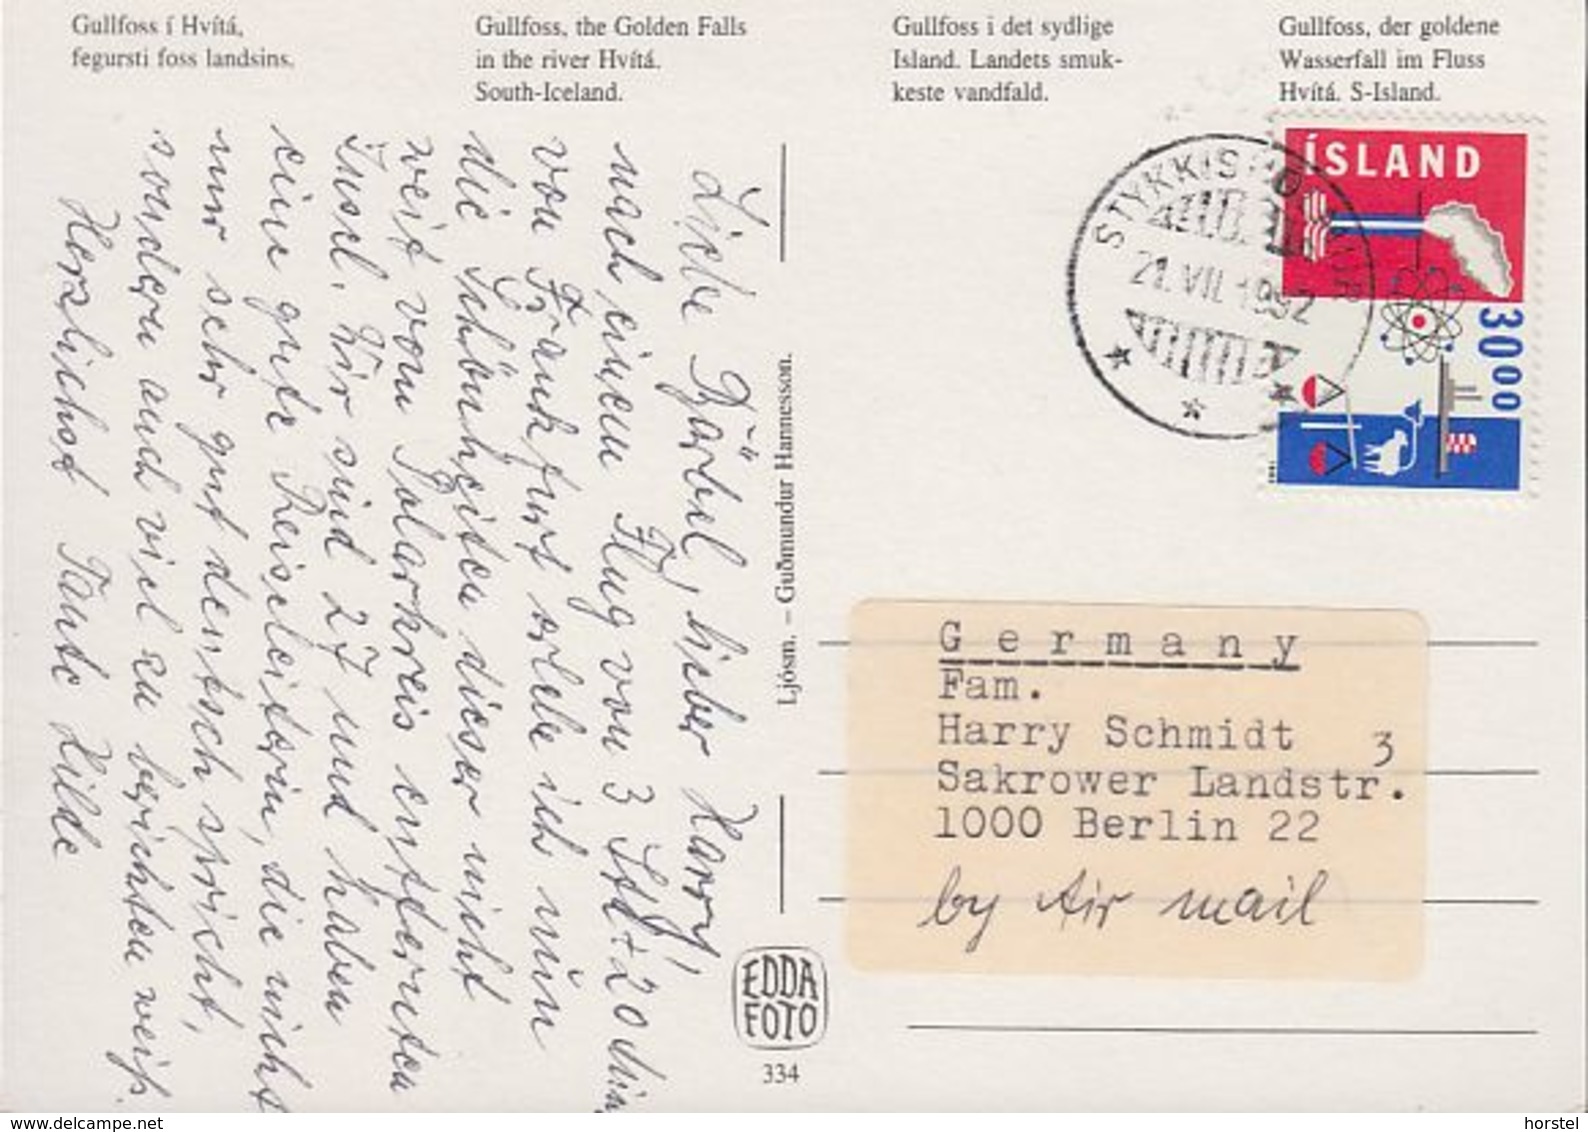 Gullfoss í Hvítá,
fegursti foss landsins.
Gullfoss, the Golden Falls
in the river Hvítá.
South-Iceland.
Gullfoss i det sydlige
Island. Landets smuk-
keste vandfald.
Gullfoss, der goldene
Wasserfall im Fluss
Hvítá. S-Island.
ÍSLAND
3000
21.VII.1992
Liebe Bärbel, lieber Harry!
nach einem Flug von 3 Std + 20 Min
von Frankfurt erlebe ich nun
die Schönheiten dieser nicht
weit vom Polarkreis entfernten
Insel. Wir sind 27 und haben
eine gute Reiseleiterin, die nicht
nur sehr gut deutsch spricht,
sondern auch viel zu berichten weiß.
Herzlichst Tante Hilde
Ljósm. – Guðmundur Hannesson.
EDDA
FOTO
334
Germany
Fam.
Harry Schmidt
Sakrower Landstr. 3
1000 Berlin 22
by Air mail
www.delcampe.net
horstel